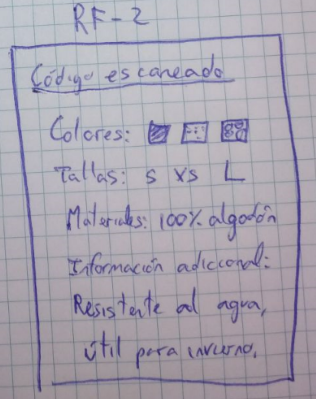 RF-2
Código escaneado
Colores:
Tallas: S XS L
Materiales: 100% algodón
Información adiccional:
Resistente al agua,
útil para invierno.